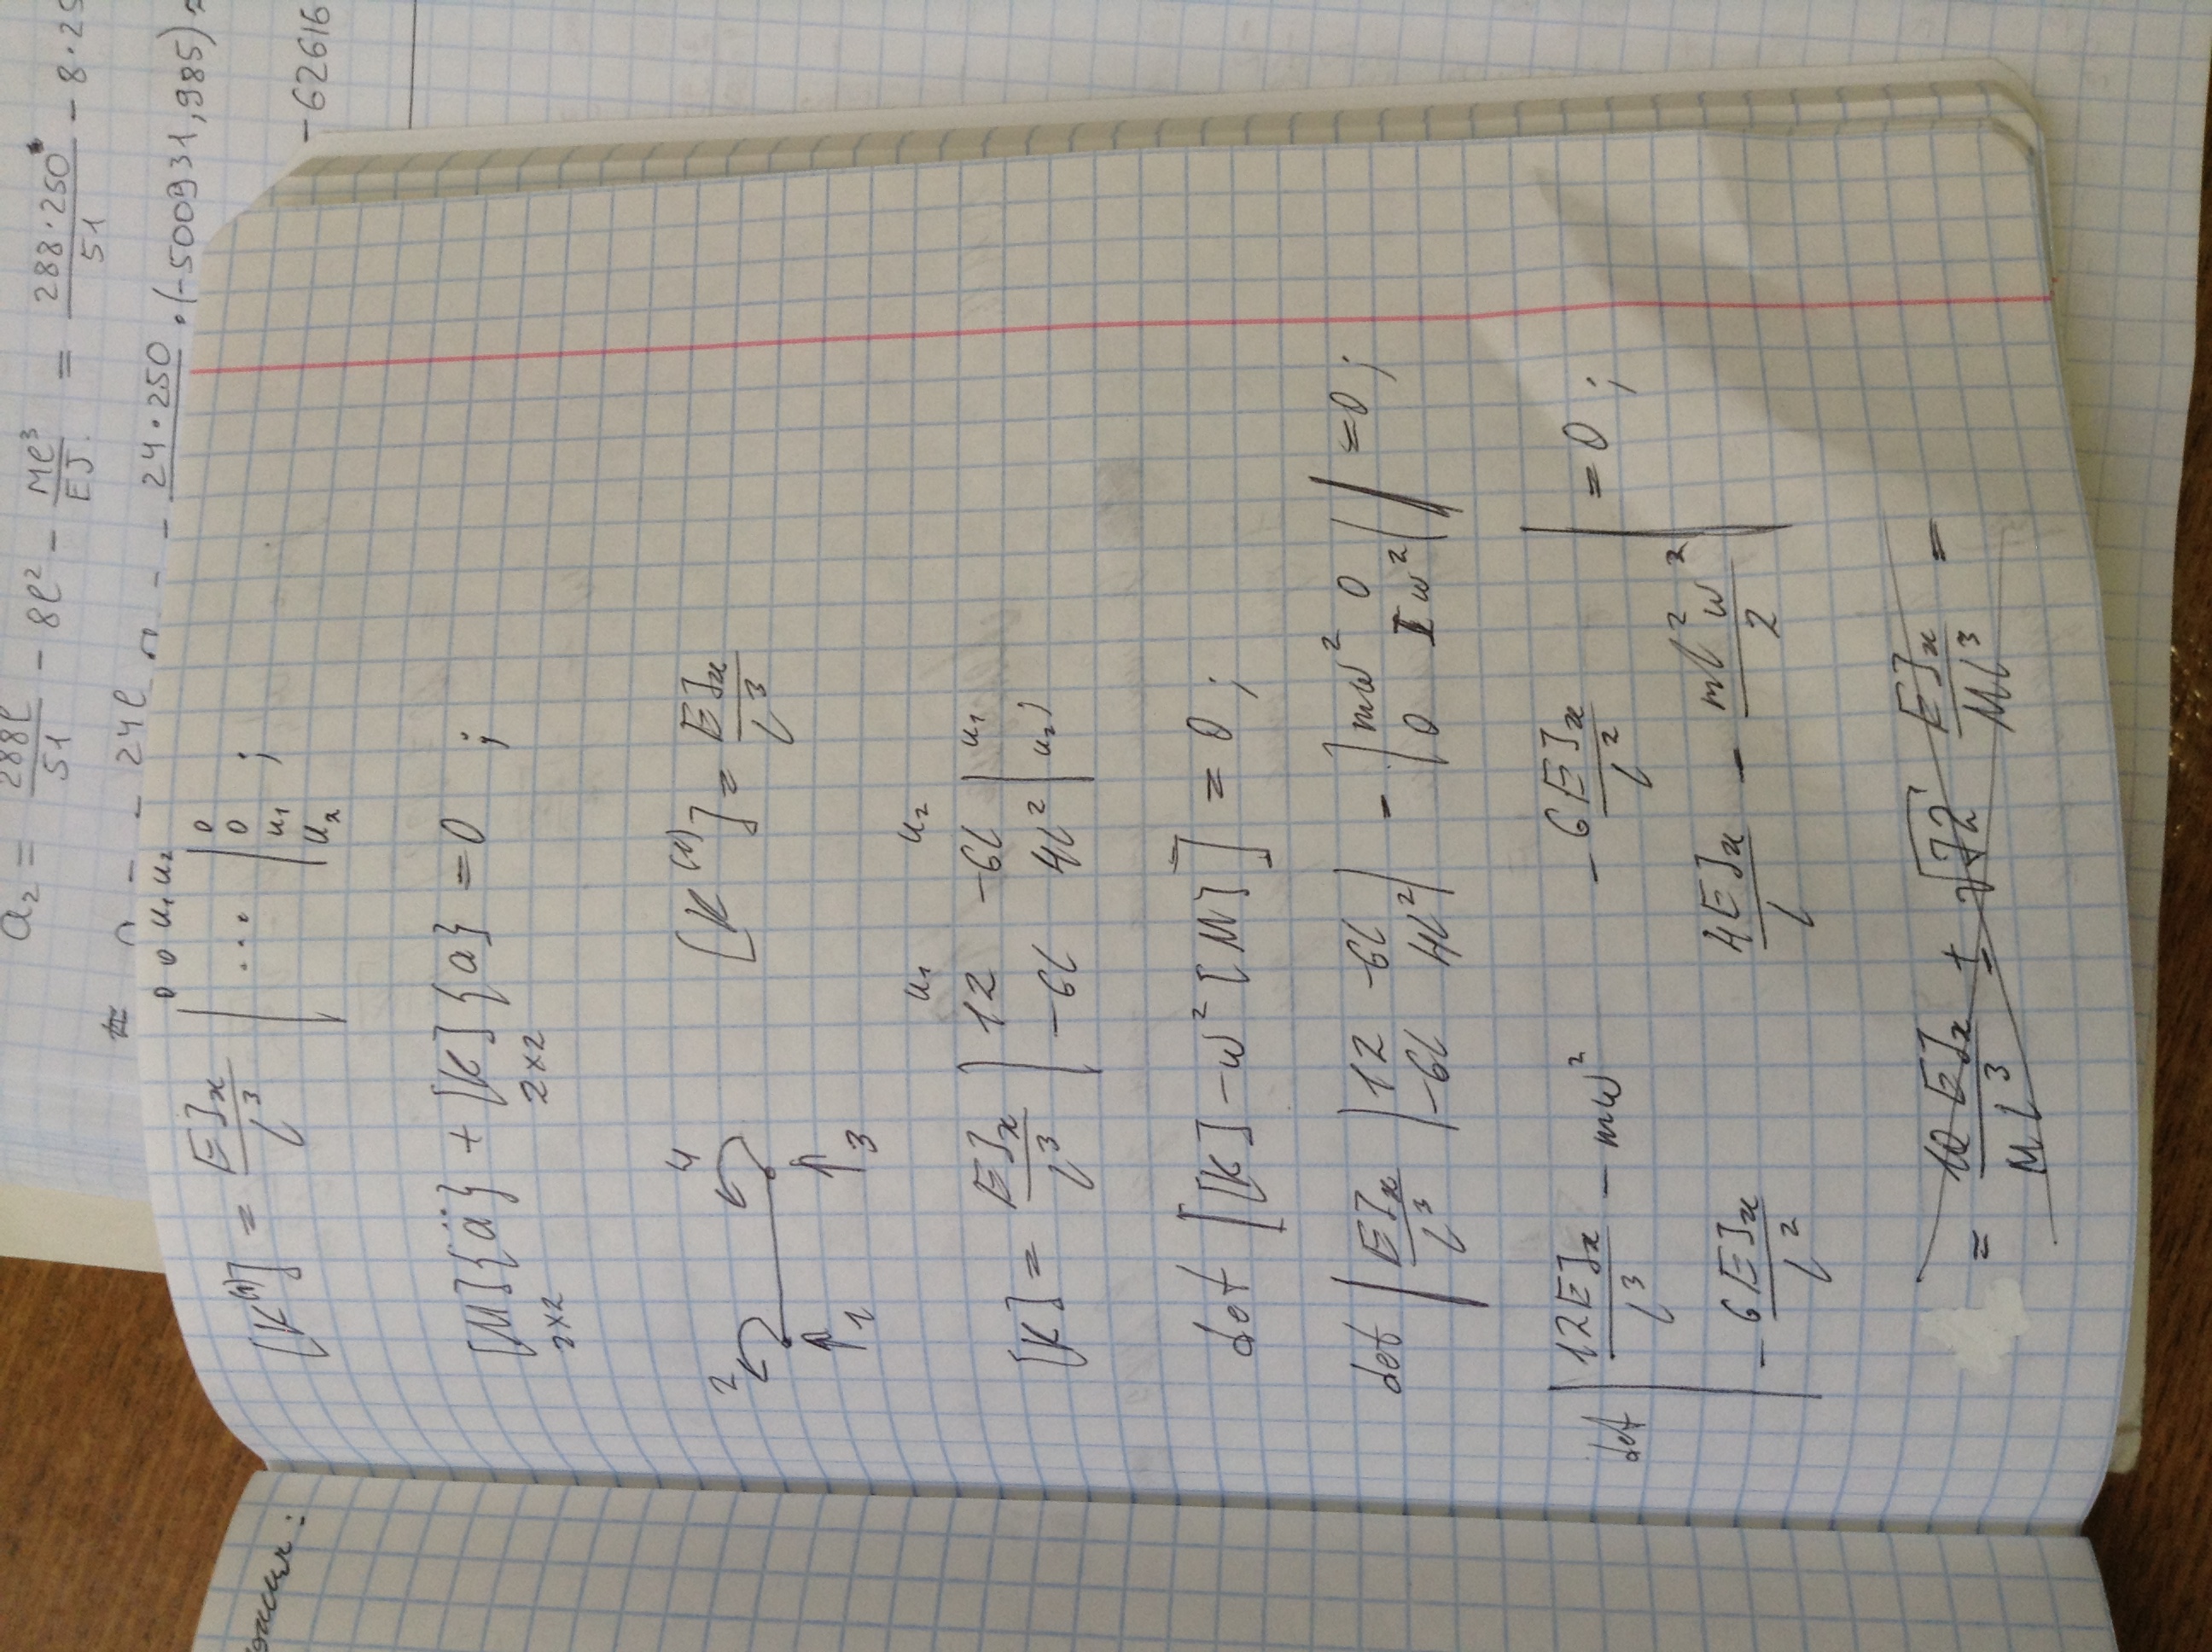 a₂ = 288l/51 - 8l² - Ml³/EJ = 288·250/51 - 8·25
- 24l - 24·250 · (-500931,985)
-62616
[K⁽¹⁾] = EJx/l³ | ... |
0 0 u₁ u₂
0
0
u₁
u₂ ;
[M]{ä} + [K]{a} = 0 ;
2×2 2×2
2 4
1 3
[K⁽¹⁾] = EJx/l³
u₁ u₂
[K] = EJx/l³ | 12 -6l | u₁
| -6l 4l² | u₂
det [[K] - ω²[M]] = 0 ;
det | EJx/l³ | 12 -6l | - | mω² 0 | | = 0 ;
| -6l 4l² | | 0 Iω² |
det | 12EJx/l³ - mω² - 6EJx/l² | = 0 ;
| - 6EJx/l² 4EJx/l - ml²ω²/2 |
= EJx/Ml³ ± √72 EJx/Ml³ =